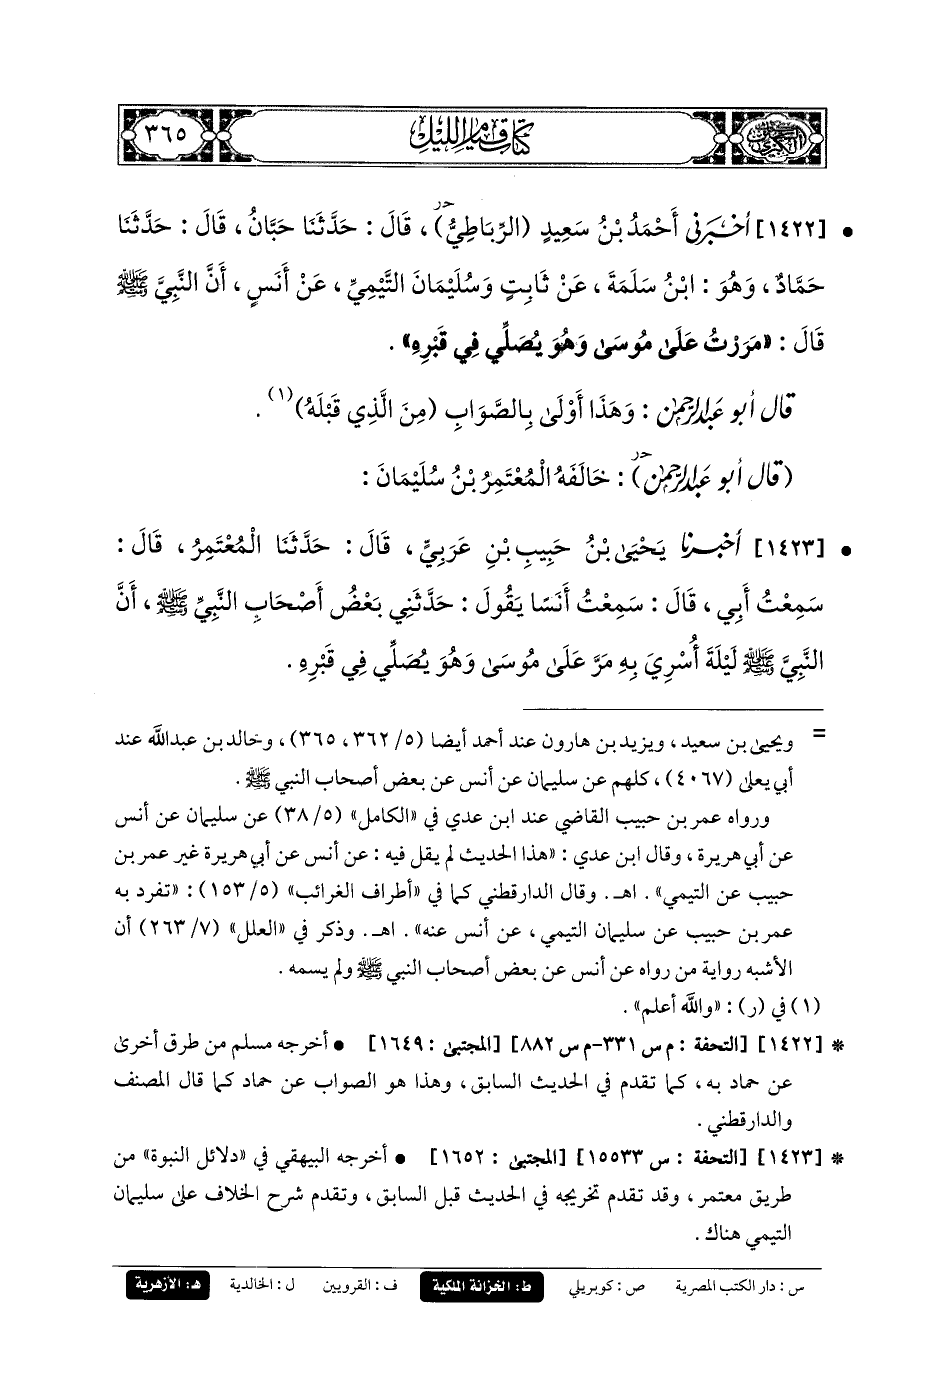 السنن الكبرى
كتاب قيام الليل
٣٦٥
• [١٤٢٢] أخبرني أَحْمَدُ بْنُ سَعِيدٍ (الرِّبَاطِيُّ)حر، قَالَ : حَدَّثَنَا حَبَّانُ، قَالَ : حَدَّثَنَا
حَمَّادٌ، وَهُوَ : ابْنُ سَلَمَةَ، عَنْ ثَابِتٍ وَسُلَيْمَانَ التَّيْمِيِّ، عَنْ أَنَسٍ، أَنَّ النَّبِيَّ ﷺ
قَالَ : «مَرَرْتُ عَلَىٰ مُوسَىٰ وَهُوَ يُصَلِّي فِي قَبْرِهِ» .
قال أبو عبد الرحمن : وَهَذَا أَوْلَىٰ بِالصَّوَابِ (مِنَ الَّذِي قَبْلَهُ)(١) .
(قال أبو عبد الرحمن)حر : خَالَفَهُ الْمُعْتَمِرُ بْنُ سُلَيْمَانَ :
• [١٤٢٣] أخبرنا يَحْيَىٰ بْنُ حَبِيبِ بْنِ عَرَبِيٍّ، قَالَ : حَدَّثَنَا الْمُعْتَمِرُ، قَالَ :
سَمِعْتُ أَبِي، قَالَ : سَمِعْتُ أَنَسًا يَقُولُ : حَدَّثَنِي بَعْضُ أَصْحَابِ النَّبِيِّ ﷺ، أَنَّ
النَّبِيَّ ﷺ لَيْلَةَ أُسْرِيَ بِهِ مَرَّ عَلَىٰ مُوسَىٰ وَهُوَ يُصَلِّي فِي قَبْرِهِ .
= ويحيىٰ بن سعيد، ويزيد بن هارون عند أحمد أيضا (٥/ ٣٦٢، ٣٦٥)، وخالد بن عبدالله عند
أبي يعلىٰ (٤٠٦٧)، كلهم عن سليمان عن أنس عن بعض أصحاب النبي ﷺ .
ورواه عمر بن حبيب القاضي عند ابن عدي في «الكامل» (٥/ ٣٨) عن سليمان عن أنس
عن أبي هريرة، وقال ابن عدي : «هذا الحديث لم يقل فيه : عن أنس عن أبي هريرة غير عمر بن
حبيب عن التيمي» . اهـ. وقال الدارقطني كما في «أطراف الغرائب» (٥/ ١٥٣) : «تفرد به
عمر بن حبيب عن سليمان التيمي، عن أنس عنه» . اهـ. وذكر في «العلل» (٧/ ٢٦٣) أن
الأشبه رواية من رواه عن أنس عن بعض أصحاب النبي ﷺ ولم يسمه .
(١) في (ر) : «والله أعلم» .
* [١٤٢٢] [التحفة : م س ٣٣١-م س ٨٨٢] [المجتبىٰ : ١٦٤٩] • أخرجه مسلم من طرق أخرىٰ
عن حماد به، كما تقدم في الحديث السابق، وهذا هو الصواب عن حماد كما قال المصنف
والدارقطني .
* [١٤٢٣] [التحفة : س ١٥٥٣٣] [المجتبىٰ : ١٦٥٢] • أخرجه البيهقي في «دلائل النبوة» من
طريق معتمر، وقد تقدم تخريجه في الحديث قبل السابق، وتقدم شرح الخلاف علىٰ سليمان
التيمي هناك .
س : دار الكتب المصرية ص : كوبريلي ط : الخزانة الملكية ف : القرويين ل : الخالدية هـ : الأزهرية